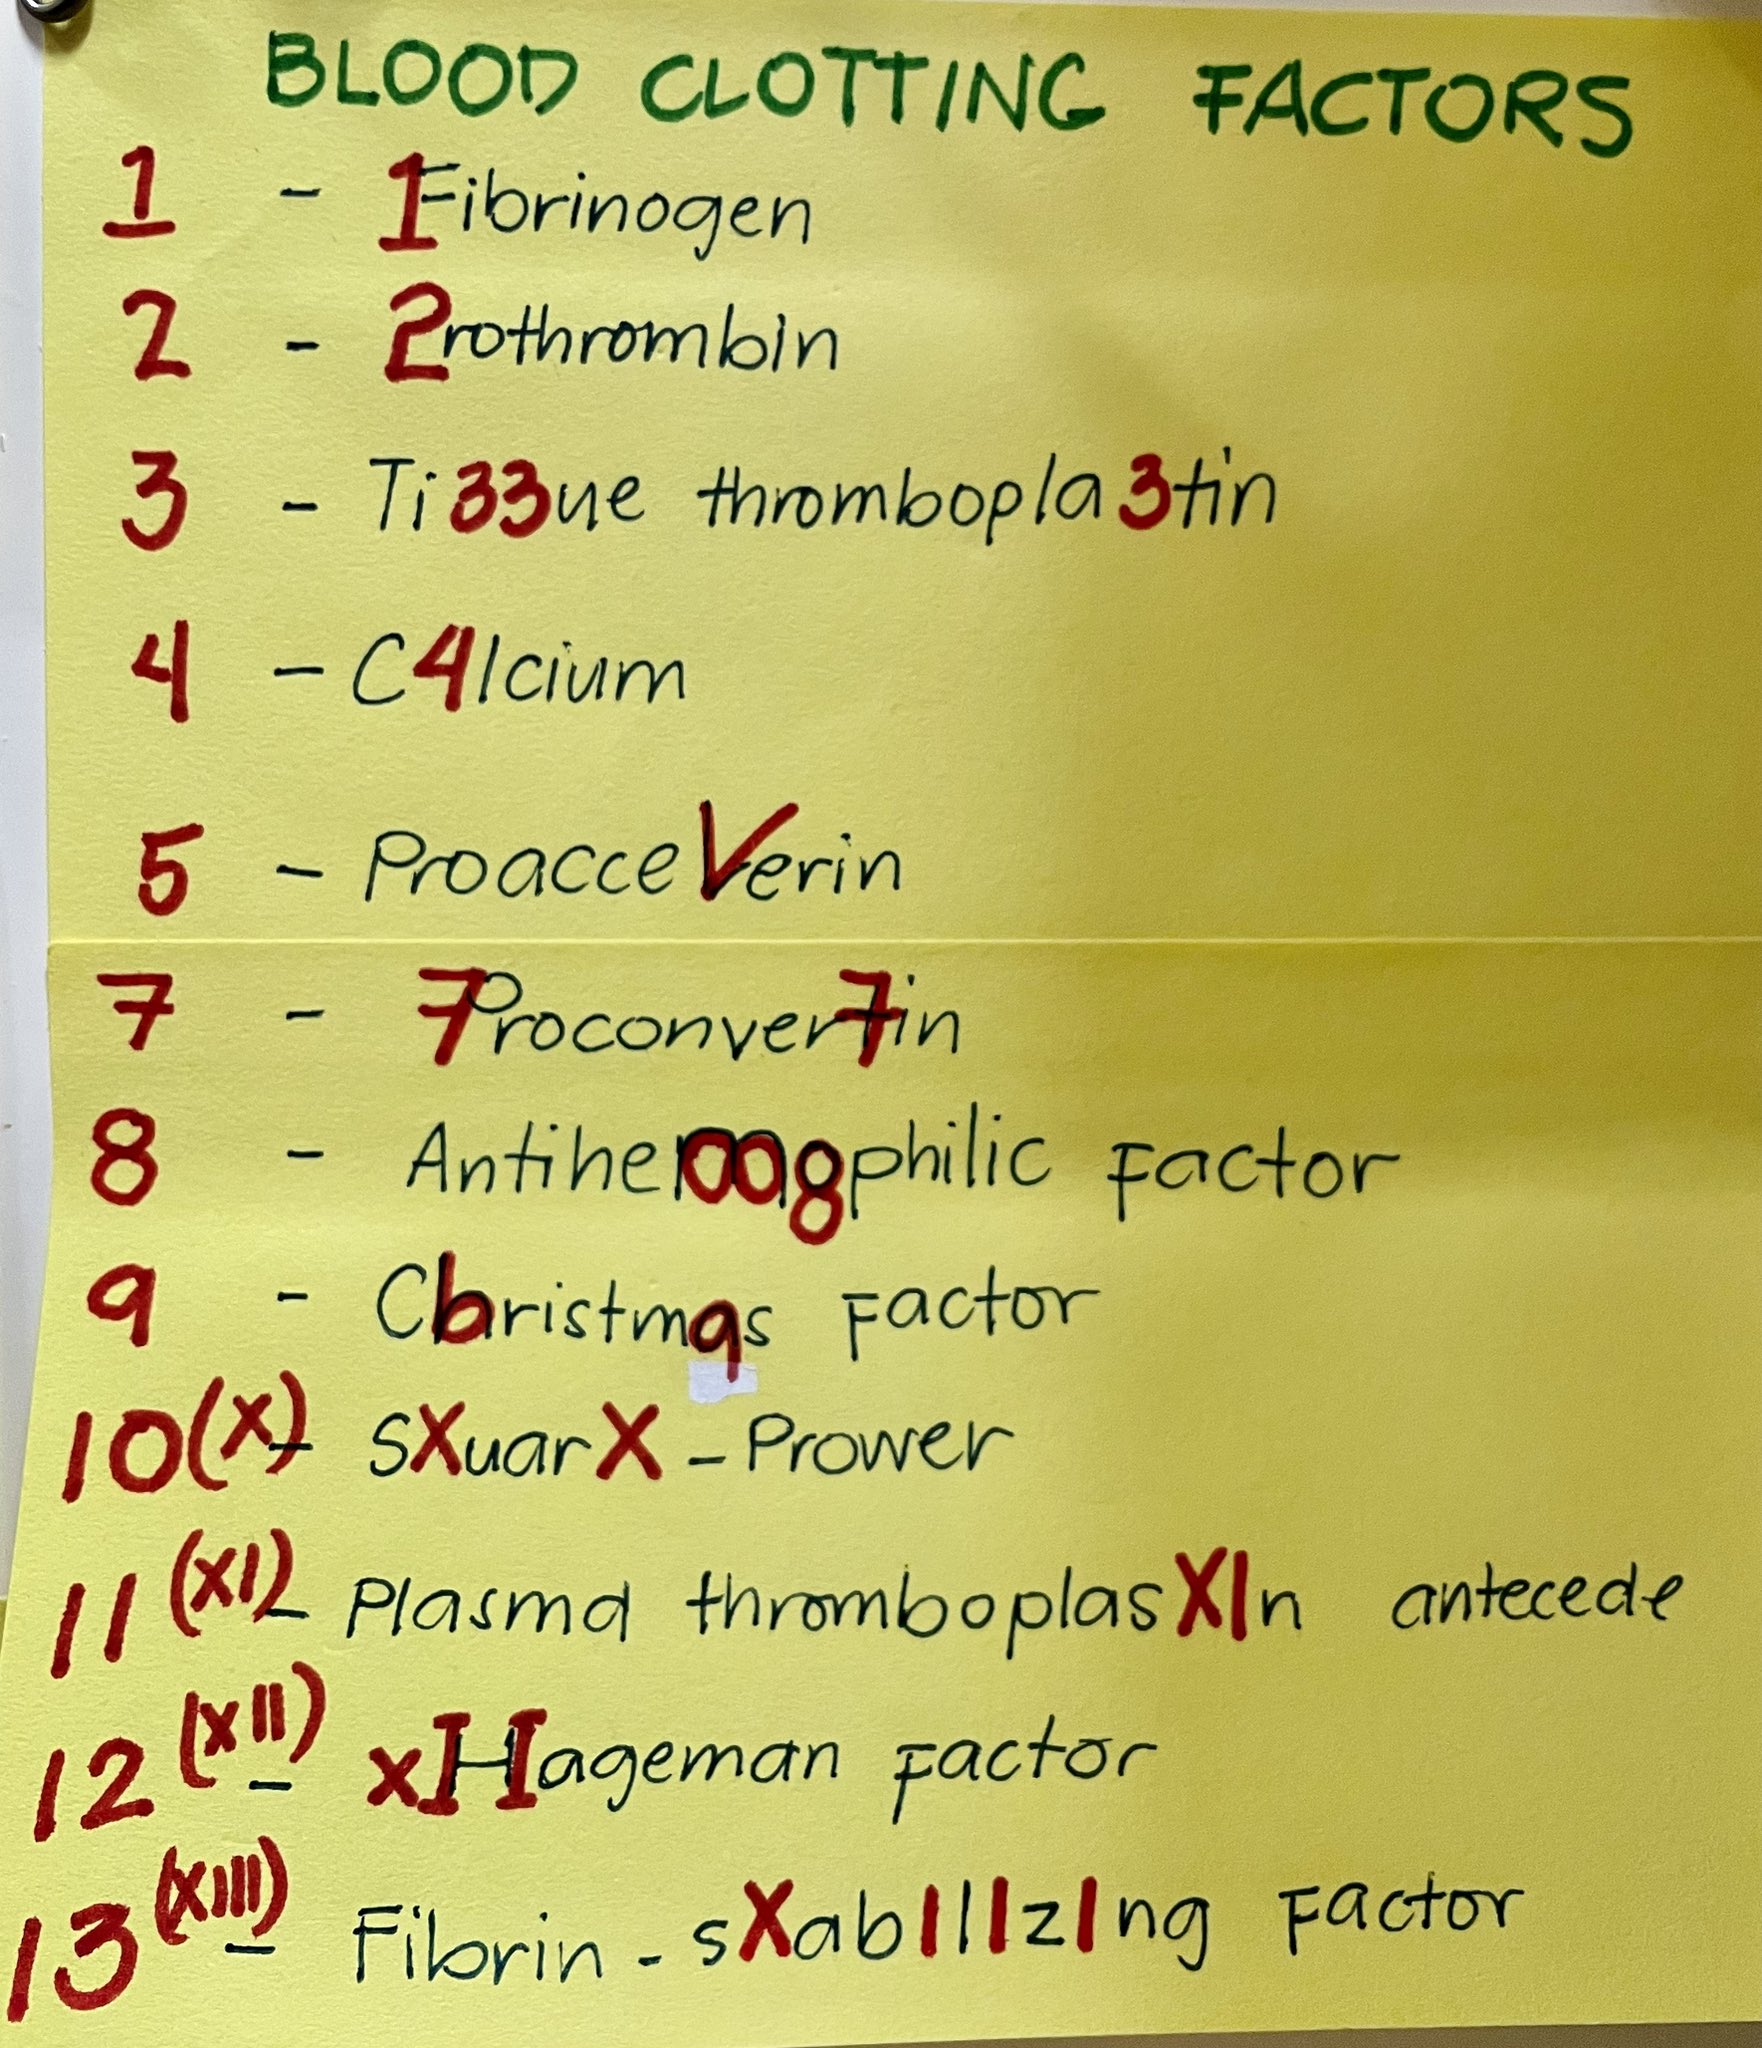 BLOOD CLOTTING FACTORS
1 - 1Fibrinogen
2 - 2rothrombin
3 - Ti33ue thrombopla3tin
4 - C4lcium
5 - ProacceVerin
7 - 7Proconver7in
8 - Antihemo8philic Factor
9 - Christm9s Factor
10(X) - sXuarX - Prower
11(XI) - Plasma thromboplasXIn antecede
12(XII) - xIHIageman Factor
13(XIII) - Fibrin - sXabIlIzIng Factor